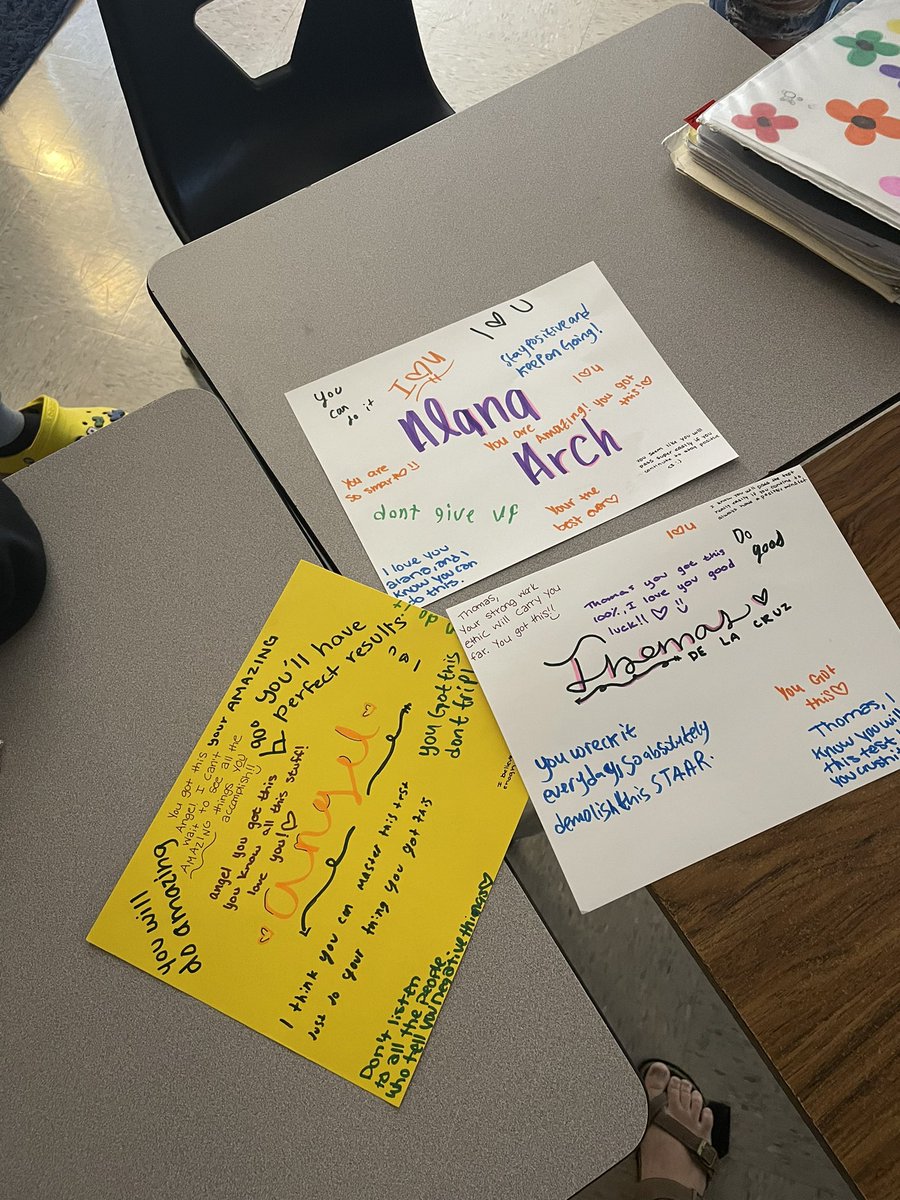 I ♡ U
Stay positive and
Keep on Going!
I ♡ u
You
can
do it
I ♡ u
Alana
Arch
You are
Amazing! you got
this!♡
You are
so smart♡!!
you seem like you will
pass super easily if you
continue to stay positive
<3 :)
dont give up
Your the
best ever♡
I love you
alana, and I
know you can
do this.
I know you will pass the test
really easily if you continue to
always have a positive mindset
I ♡ u
Do
good
Thomas,
Your strong work
ethic will carry you
far. You got this!!
Thomas you got this
100%. I love you good
luck!! ♡
Thomas ♡
DE LA CRUZ
you wreck it
everyday, so absolutely
demolish this STAAR.
You Got
this♡
Thomas, I
know you will
this test
you crush
You got this your AMAZING
Angel I can't
wait to see all the
AMAZING things you
accomplish!!
you will
do amazing
go you'll have
perfect results.
angel you got this
you know all this stuff!
love you!♡
angel
you Got this
dont trip!
I think you can master this test
Just do your thing you got this
Don't listen
to all the people
who tell you negative things♡